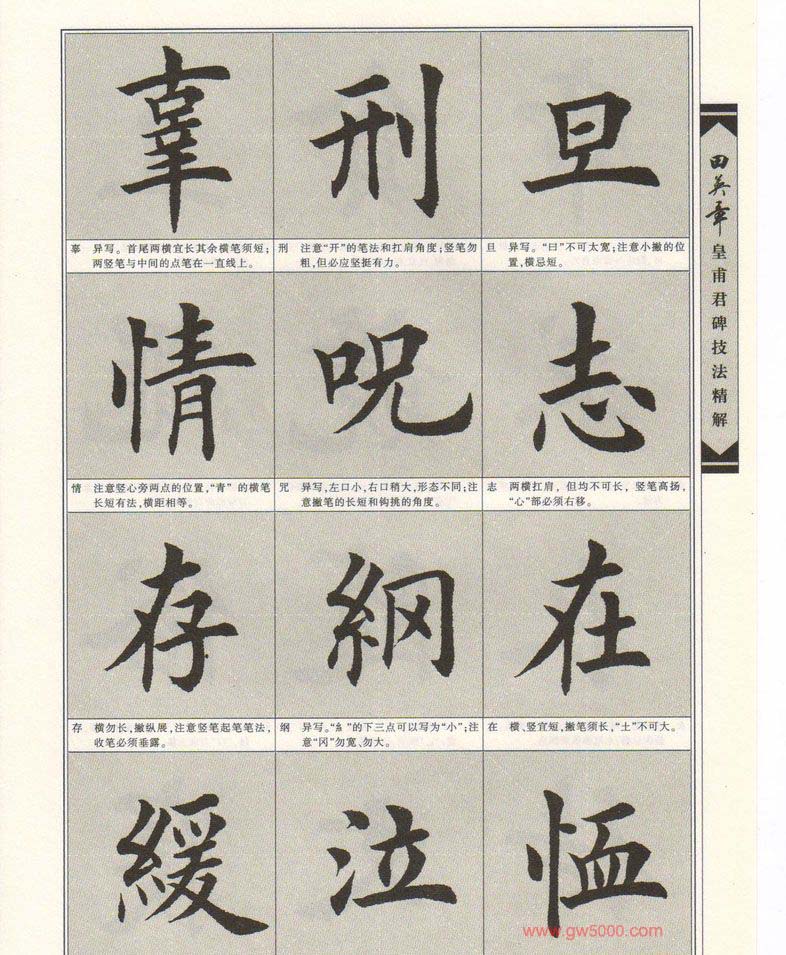 辜 刑 旦
辜 异写。首尾两横宜长其余横笔须短;
两竖笔与中间的点笔在一直线上。
刑 注意“开”的笔法和扛肩角度;竖笔勿
粗,但必应坚挺有力。
旦 异写。“曰”不可太宽;注意小撇的位
置,横忌短。
情 呪 志
情 注意竖心旁两点的位置,“青”的横笔
长短有法,横距相等。
咒 异写,左口小,右口稍大,形态不同;注
意撇笔的长短和钩挑的角度。
志 两横扛肩,但均不可长,竖笔高扬,
“心”部必须右移。
存 綱 在
存 横勿长,撇纵展,注意竖笔起笔笔法,
收笔必须垂露。
纲 异写。“糹”的下三点可以写为“小”;注
意“冈”勿宽、勿大。
在 横、竖宜短,撇笔须长,“土”不可大。
緩 泣 恤
田英章
皇甫君碑技法精解
www.gw5000.com